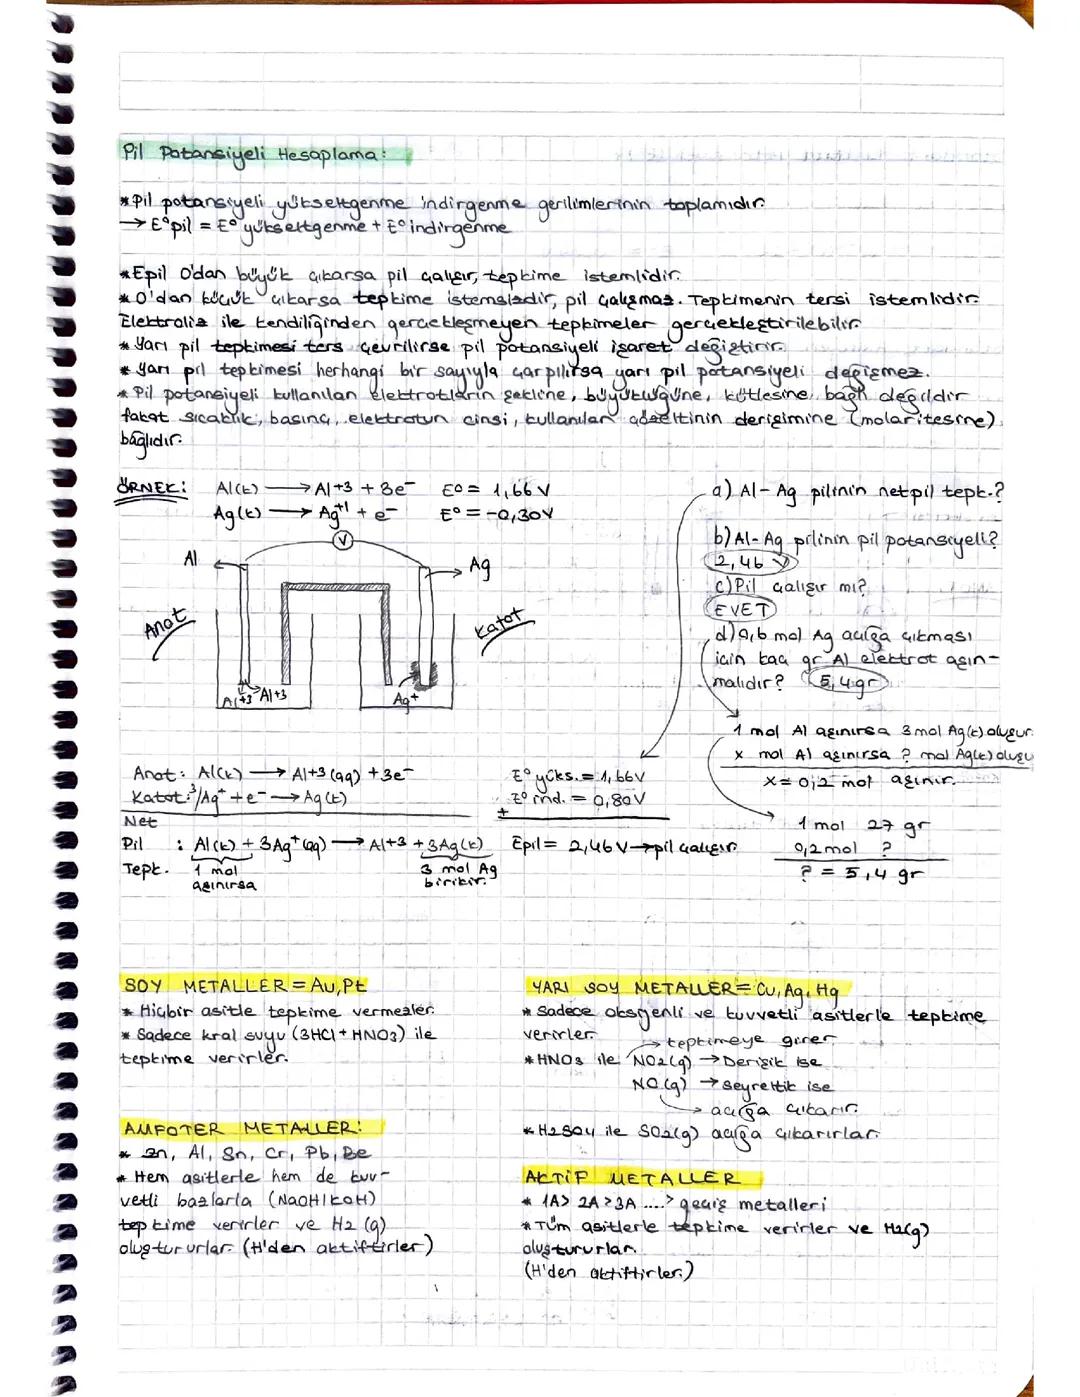 Pil Potansiyeli Hesaplama:
* Pil potansiyeli yükseltgenme indirgenme gerilimlerinin toplamıdır.
→ E°pil = E° yükseltgenme + E° indirgenme
* Epil 0'dan büyük çıkarsa pil çalışır, tepkime istemlidir.
* 0'dan küçük çıkarsa tepkime istemsizdir, pil çalışmaz. Tepkimenin tersi istemlidir.
Elektroliz ile kendiliğinden gerçekleşmeyen tepkimeler gerçekleştirilebilir.
* Yarı pil tepkimesi ters çevrilirse pil potansiyeli işaret değiştirir.
* Yarı pil tepkimesi herhangi bir sayıyla çarpılırsa yarı pil potansiyeli değişmez.
* Pil potansiyeli kullanılan elektrotların şekline, büyüklüğüne, kütlesine bağlı değildir
fakat sıcaklık, basınç, elektrotun cinsi, kullanılan çözeltinin derişimine (molaritesine)
bağlıdır.
ÖRNEK: Al(k) → Al+3 + 3e- E0 = 1,66 V
Ag(k) → Ag+1 + e- E° = -0,80V
V
Al
Ag
Anot
Katot
Al+3 Al+3
Ag+
a) Al-Ag pilinin net pil tepk.?
b) Al-Ag pilinin pil potansiyeli?
2,46 V
c) Pil çalışır mı?
EVET
d) 0,6 mol Ag açığa çıkması
için kaç gr Al elektrot aşın-
malıdır? 5,4 gr
1 mol Al aşınırsa 3 mol Ag(k) oluşur.
x mol Al aşınırsa ? mol Ag(k) oluşu
x = 0,2 mol aşınır.
1 mol 27 gr
0,2 mol ?
? = 5,4 gr
Anot: Al(k) → Al+3 (aq) + 3e- E° yüks. = 1,66V
Katot: 3/Ag+ + e- → Ag(k) E° ind. = 0,80V
+
Net
Pil : Al(k) + 3Ag+(aq) → Al+3 + 3Ag(k) Epil = 2,46V → pil çalışır.
Tepk. 1 mol 3 mol Ag
aşınırsa birikir.
SOY METALLER = Au, Pt
* Hiçbir asitle tepkime vermezler.
* Sadece kral suyu (3HCl + HNO3) ile
tepkime verirler.
AMFOTER METALLER:
* Zn, Al, Sn, Cr, Pb, Be
* Hem asitlerle hem de kuv-
vetli bazlarla (NaOH/KOH)
tepkime verirler ve H2 (g)
oluştururlar. (H'den aktiftirler)
YARI SOY METALLER = Cu, Ag, Hg
* Sadece oksijenli ve kuvvetli asitlerle tepkime
verirler.
→ tepkimeye girer
* HNO3 ile NO2(g) → Derişik ise
NO(g) → Seyreltik ise
→ açığa çıkarır.
* H2SO4 ile SO2(g) açığa çıkarırlar.
AKTİF METALLER
* 1A > 2A > 3A .... > geçiş metalleri
* Tüm asitlerle tepkime verirler ve H2(g)
oluştururlar.
(H'den aktiftirler.)